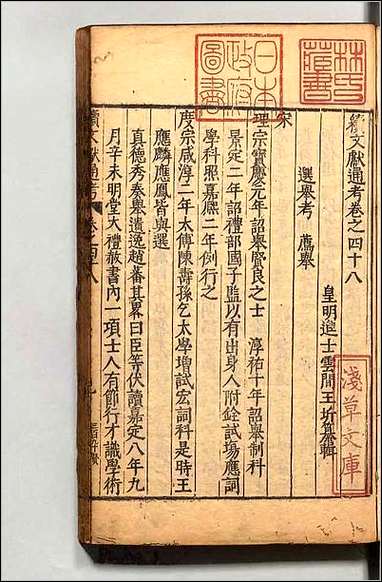 續文獻通考卷之四十八
皇明進士雲間王圻纂輯
選舉考　薦舉
宋
理宗寶慶元年詔舉賢良之士　淳祐十年詔舉制科
景定二年詔禮部國子監以有出身人附銓試場應詞
學科照嘉熙二年例行之
度宗咸淳二年太傅陳壽孫乞太學增試宏詞科是時王
應麟應鳳皆與選
真德秀奏舉遺逸趙蕃其畧曰臣等伏讀嘉定八年九
月辛未明堂大禮赦書內一項士人有節行才識學術
續文獻通考
卷之四十八
林氏藏書
日本政府圖書
淺草文庫